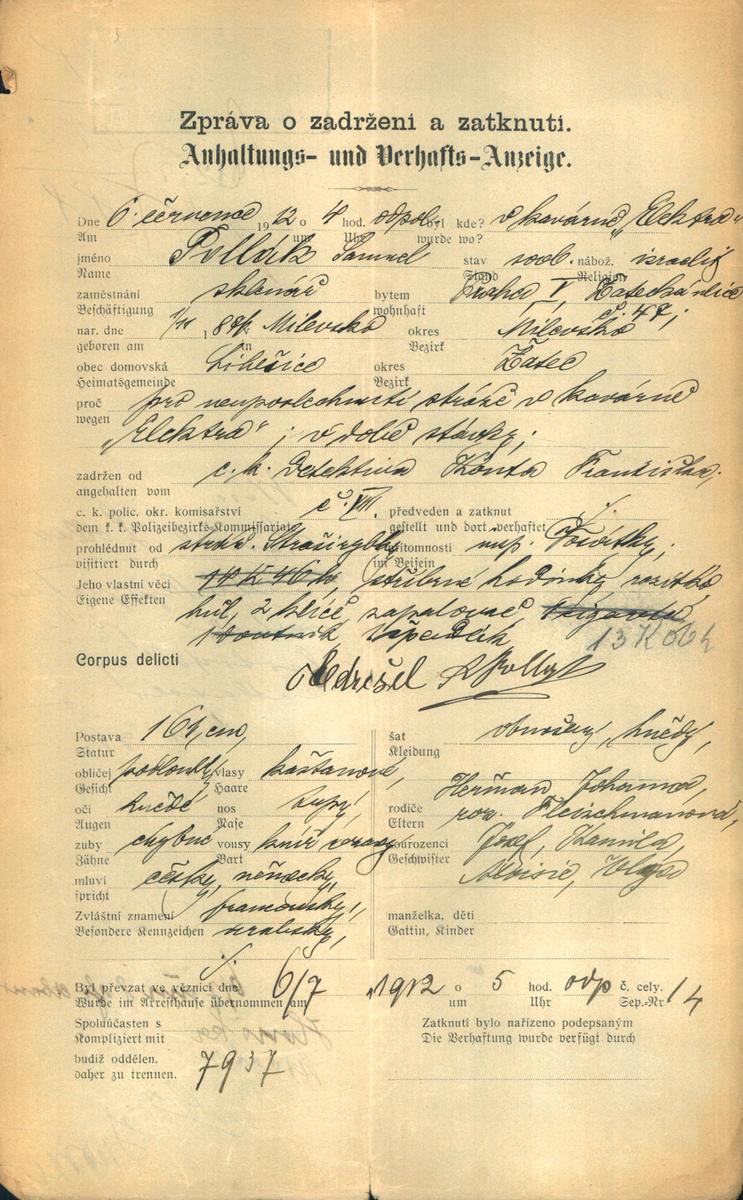 Zpráva o zadržení a zatknutí.
Anhaltungs- und Verhafts-Anzeige.
Dne 6. července 1912 o 4 hod. odpol. byl kde? v kavárně „Elektra“
Am um Uhr wurde wo?
jméno Pollák Samuel stav svob. nábož. israelit
Name Stand Religion
zaměstnání sklenář bytem Praha V, Žatecká ulice
Beschäftigung wohnhaft č. 47;
nar. dne 188 Milevsko okres Milevsko
geboren am in Bezirk
obec domovská Liběšice okres Žatec
Heimatsgemeinde Bezirk
proč pro neuposlechnutí stráže v kavárně
wegen „Elektra“; v době stávky;
zadržen od c. k. Detektiva Konta Františka,
angehalten vom
c. k. polic. okr. komisařství č. VIII. předveden a zatknut
dem k. k. Polizeibezirks-Kommissariate gestellt und dort verhaftet
prohlédnut od stráž. v přítomnosti insp.
visitiert durch im Beisein
Jeho vlastní věci stříbrné hodinky, razítko
Eigene Effekten hůl, 2 klíče, zapalovač,
13 K 06 h
Corpus delicti
Obdržel Pollak
Postava cm, šat obnošený, hnědý,
Statur Kleidung
obličej podlouhlý, vlasy kaštanové,
Gesicht Haare
Heřman, Johanna,
oči hnědé nos tupý, rodiče roz. Fleischmanová,
Augen Nase Eltern
zuby chybné vousy knír sourozenci Josef, Kamila,
Zähne Bart Geschwister
mluví česky, německy, Aloisie,
spricht
Zvláštní znamení francouzsky, manželka, děti
Besondere Kennzeichen Gattin, Kinder
Byl převzat ve věznici dne 6/7 1912 o 5 hod. odp č. cely. 14
Wurde im Arresthause übernommen am um Uhr Sep.-Nr
Spoluúčasten s Zatknutí bylo nařízeno podepsaným
Kompliziert mit Die Verhaftung wurde verfügt durch
budiž oddělen.
daher zu trennen. 7937